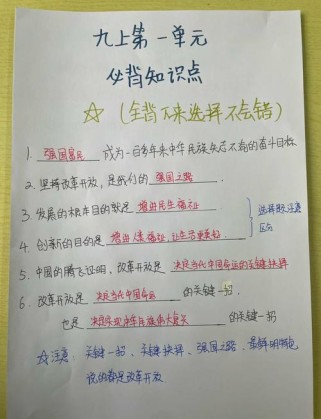 九上第一单元
必背知识点
☆（全背下来选择不会错）
1. 强国富民 成为一百多年来中华民族矢志不渝的奋斗目标
2. 坚持改革开放，是我们的 强国之路 .
3. 发展的根本目的就是 增进民生福祉
4. 创新的目的是 增进人类福祉，让生活更美好 .
选择题注意
区分
5. 中国的腾飞证明，改革开放是 决定当代中国命运的关键抉择
6. 改革开放是 决定当代中国命运 的关键一招，
也是 决定实现中华民族伟大复兴 的关键一招
☆注意：关键一招、关键抉择、强国之路、最鲜明特色
说的都是改革开放.